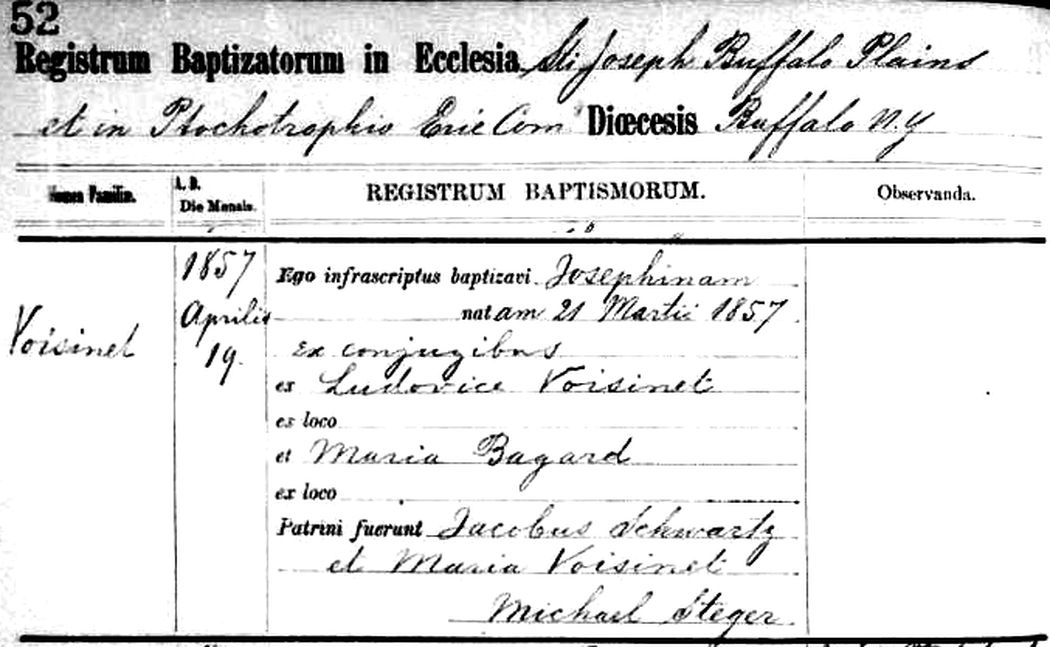 52
Registrum Baptizatorum in Ecclesia Sti Joseph Buffalo Plains
et in Ptochotrophio Erie Com Diœcesis Buffalo N.Y
Nomen Familiæ.
A. D.
Die Mensis.
REGISTRUM BAPTISMORUM.
Observanda.
Voisinet
1857
Aprilis
19.
Ego infrascriptus baptizavi Josephinam
natam 21 Martii 1857
ex conjugibus
ex Ludovico Voisinet
ex loco
et Maria Bagard
ex loco
Patrini fuerunt Jacobus Schwartz
et Maria Voisinet
Michael Steger